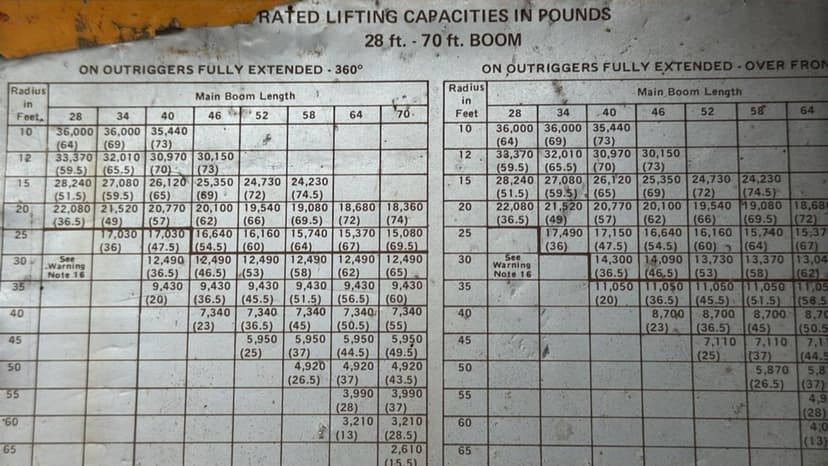 RATED LIFTING CAPACITIES IN POUNDS
28 ft. - 70 ft. BOOM
ON OUTRIGGERS FULLY EXTENDED - 360º
Radius in Feet
Main Boom Length
28 34 40 46 52 58 64 70
10 36,000 36,000 35,440
(64) (69) (73)
12 33,370 32,010 30,970 30,150
(59.5) (65.5) (70) (73)
15 28,240 27,080 26,120 25,350 24,730 24,230
(51.5) (59.5) (65) (69) (72) (74.5)
20 22,080 21,520 20,770 20,100 19,540 19,080 18,680 18,360
(36.5) (49) (57) (62) (66) (69.5) (72) (74)
25 17,030 17,030 16,640 16,160 15,740 15,370 15,080
(36) (47.5) (54.5) (60) (64) (67) (69.5)
30 See Warning Note 16 12,490 12,490 12,490 12,490 12,490 12,490
(36.5) (46.5) (53) (58) (62) (65)
35 9,430 9,430 9,430 9,430 9,430 9,430
(20) (36.5) (45.5) (51.5) (56.5) (60)
40 7,340 7,340 7,340 7,340 7,340
(23) (36.5) (45) (50.5) (55)
45 5,950 5,950 5,950 5,950
(25) (37) (44.5) (49.5)
50 4,920 4,920 4,920
(26.5) (37) (43.5)
55 3,990 3,990
(28) (37)
60 3,210 3,210
(13) (28.5)
65 2,610
(15.5)
ON OUTRIGGERS FULLY EXTENDED - OVER FRON
Radius in Feet
Main Boom Length
28 34 40 46 52 58 64
10 36,000 36,000 35,440
(64) (69) (73)
12 33,370 32,010 30,970 30,150
(59.5) (65.5) (70) (73)
15 28,240 27,080 26,120 25,350 24,730 24,230
(51.5) (59.5) (65) (69) (72) (74.5)
20 22,080 21,520 20,770 20,100 19,540 19,080 18,68
(36.5) (49) (57) (62) (66) (69.5) (72)
25 17,490 17,150 16,640 16,160 15,740 15,37
(36) (47.5) (54.5) (60) (64) (67)
30 See Warning Note 16 14,300 14,090 13,730 13,370 13,04
(36.5) (46.5) (53) (58) (62)
35 11,050 11,050 11,050 11,050 11,05
(20) (36.5) (45.5) (51.5)
40 8,700 8,700 8,700 8,70
(23) (36.5) (45) (50.5
45 7,110 7,110 7,1
(25) (37) (44.5
50 5,870 5,8
(26.5) (37)
55 4,9
(28)
60
(13)
65